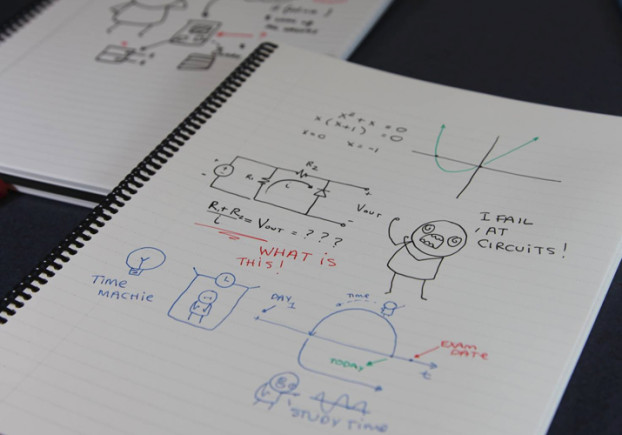 x² + x = 0
x(x+1) = 0
x=0 x = -1
R2
+
-
R1
i
+
-
VOUT
R1 + R2 / i = VOUT = ???
WHAT IS
THIS!
I FAIL
AT
CIRCUITS!
TIME
MACHIE
DAY
1
TIME
TODAY
EXAM
DATE
t
STUDY TIME